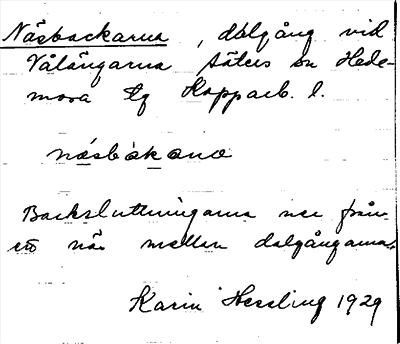 Näsbackarna, dalgång vid
Vålängarna Säters sn Hede-
mora tg Kopparb. l.
näsbàkana
Backsluttningarna ner från
ett näs mellan dalgångarna.
Karin Hessling 1929